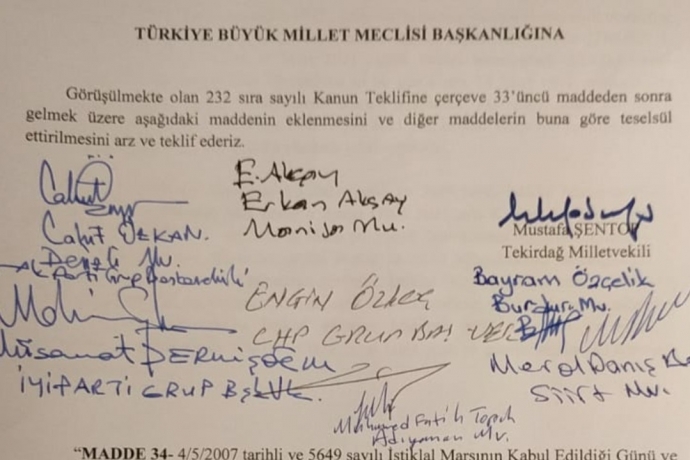 TÜRKİYE BÜYÜK MİLLET MECLİSİ BAŞKANLIĞINA
Görüşülmekte olan 232 sıra sayılı Kanun Teklifine çerçeve 33'üncü maddeden sonra
gelmek üzere aşağıdaki maddenin eklenmesini ve diğer maddelerin buna göre teselsül
ettirilmesini arz ve teklif ederiz.
Cahit
Cahit ÖZKAN.
Denizli Mv.
Ak Parti Grup Başkanvekili
E. Akçay
Erkan Akçay
Manisa Mv.
Mustafa ŞENTOP
Tekirdağ Milletvekili
Bayram Özçelik
Burdur Mv.
ENGİN ÖZKOÇ
CHP GRUP BAŞ VEK
Meral Danış
Siirt Mv.
Müsavat DERVİŞOĞLU
İYİ PARTİ GRUP BŞK VK.
Muhammed Fatih Toprak
Adıyaman Mv.
"MADDE 34- 4/5/2007 tarihli ve 5649 sayılı İstiklal Marşının Kabul Edildiği Günü ve